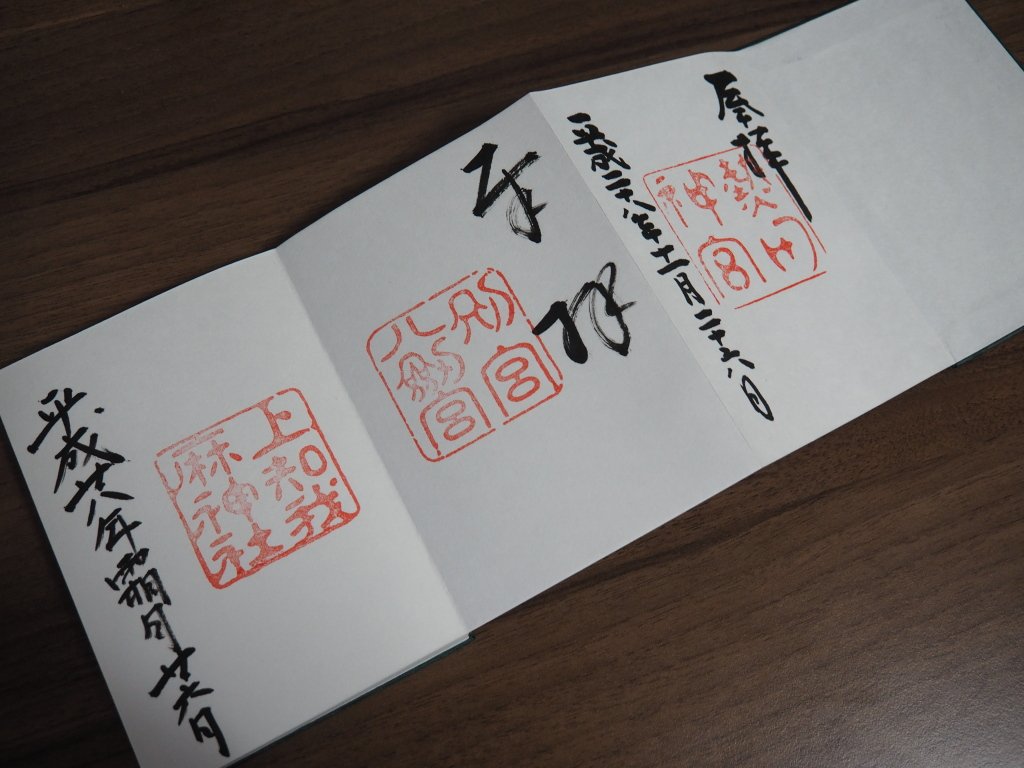 奉拝
熱田
神宮
平成二十八年十一月二十六日
奉拝
別宮
八剱宮
上知我
麻神社
平成廿八年霜月廿六日